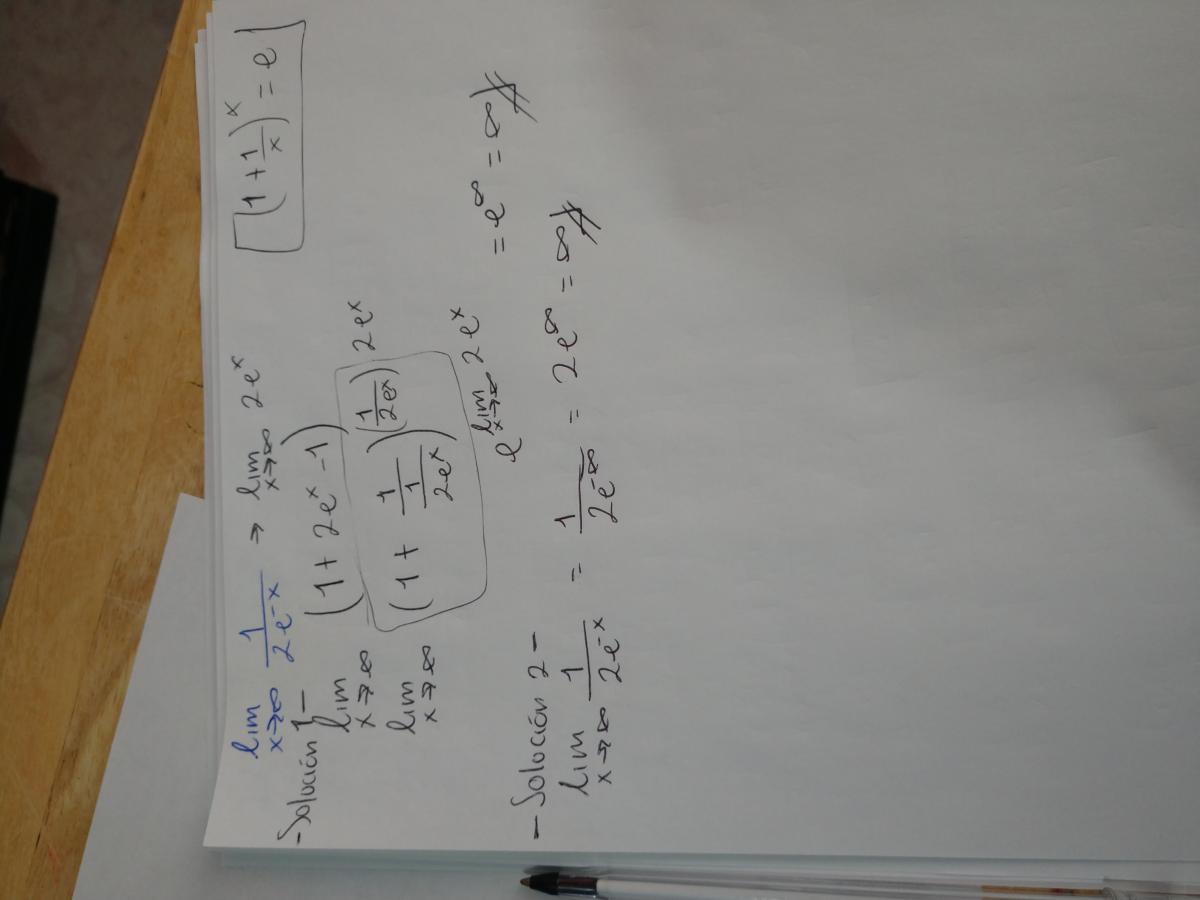 lim x→∞ 1/(2e^-x) → lim x→∞ 2e^x [(1 + 1/x)^x = e]
-Solución 1-
lim x→∞ (1 + 2e^x - 1)
lim x→∞ (1 + 1/(1/(2e^x)))^(1/(2e^x)) 2e^x
e^(lim x→∞ 2e^x) = e^∞ = ∞
- Solución 2 -
lim x→∞ 1/(2e^-x) = 1/(2e^-∞) = 2e^∞ = ∞